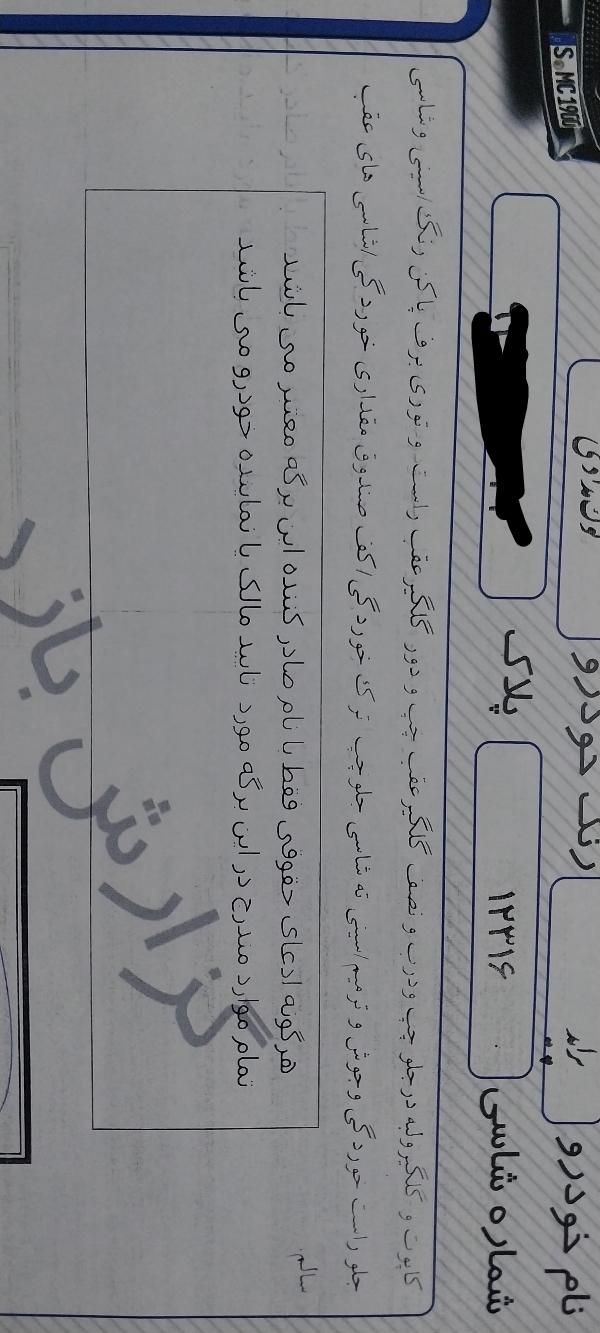 نام خودرو پراید رنگ خودرو نوک مدادی
شماره شاسی ۱۲۳۱۶ پلاک
S MC 1900
کاپوت و گلگیر و لبه در جلو چپ و درب و نصف گلگیر عقب چپ و دور گلگیر عقب راست و توری برف پاکن رنگ/سینی و شاسی
جلو راست خوردگی و جوش و ترمیم/سینی ته شاسی جلو چپ ترک خوردگی/کف صندوق مقداری خوردگی/شاسی های عقب
سالم
هرگونه ادعای حقوقی فقط با نام صادر کننده این برگه معتبر می باشد
تمام موارد مندرج در این برگه مورد تایید مالک یا نماینده خودرو می باشد
گزارش بازد